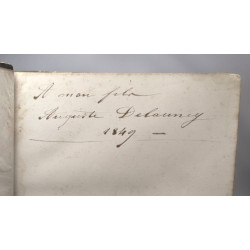 A mon fils
Auguste Delauney
1849 —